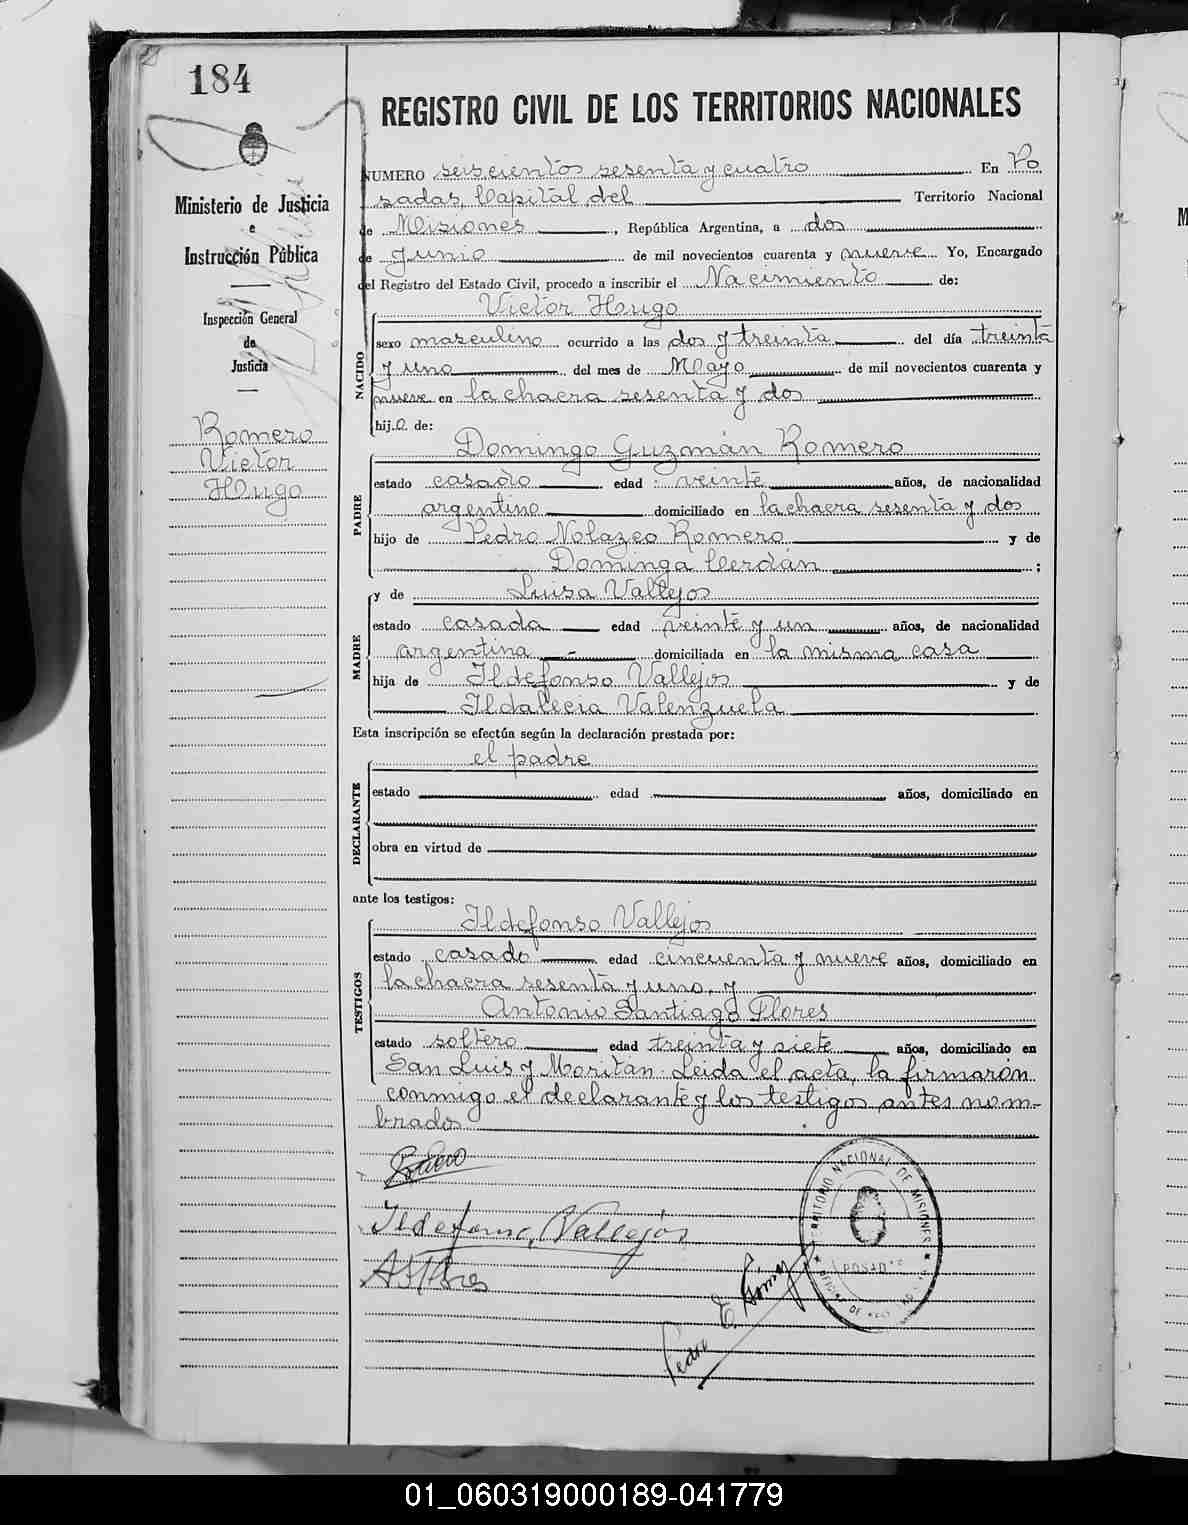 184
REGISTRO CIVIL DE LOS TERRITORIOS NACIONALES
Ministerio de Justicia
e
Instrucción Pública
Inspección General
de
Justicia
Romero
Victor
Hugo
NUMERO seiscientos sesenta y cuatro En Po
sadas, Capital del Territorio Nacional
de Misiones, República Argentina, a dos
de Junio de mil novecientos cuarenta y nueve Yo, Encargado
del Registro del Estado Civil, procedo a inscribir el Nacimiento de:
Victor Hugo
NACIDO
sexo masculino ocurrido a las dos y treinta del día treinta
y uno del mes de Mayo de mil novecientos cuarenta y
nueve en la chacra sesenta y dos
hij.o de:
Domingo Guzmán Romero
PADRE
estado casado edad veinte años, de nacionalidad
argentino domiciliado en la chacra sesenta y dos
hijo de Pedro Nolazco Romero y de
Dominga Cerdán ;
y de Luisa Vallejos
MADRE
estado casada edad veinte y un años, de nacionalidad
argentina domiciliada en la misma casa
hija de Ildefonso Vallejos y de
Ildalecia Valenzuela
Esta inscripción se efectúa según la declaración prestada por:
el padre
DECLARANTE
estado edad años, domiciliado en
obra en virtud de
ante los testigos:
Ildefonso Vallejos
TESTIGOS
estado casado edad cincuenta y nueve años, domiciliado en
la chacra sesenta y uno, y
Antonio Santiago Flores
estado soltero edad treinta y siete años, domiciliado en
San Luis y Moritán. Leida el acta, la firmaron
conmigo el declarante y los testigos antes nom-
brados
Ildefonso Vallejos
Pedro E. Gómez
TERRITORIO NACIONAL DE MISIONES
POSADAS
01_060319000189-041779